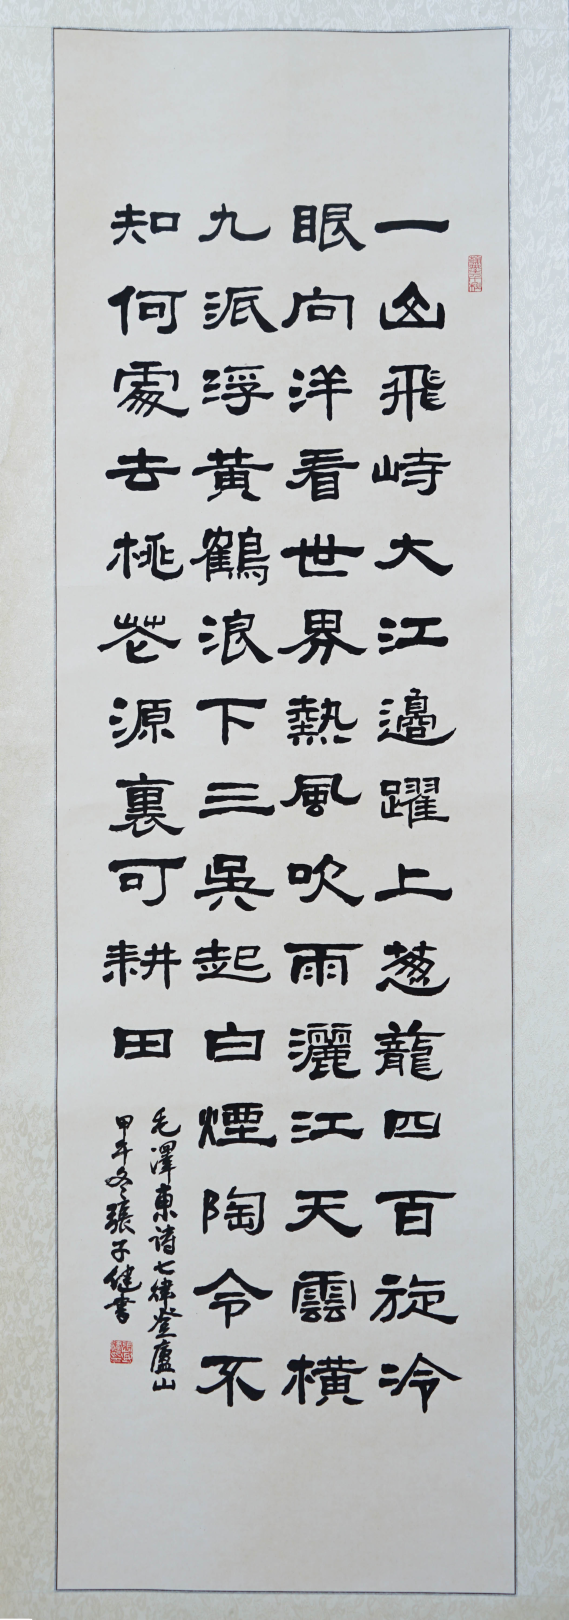 一山飛峙大江邊躍上葱蘢四百旋冷
眼向洋看世界熱風吹雨灑江天雲橫
九派浮黃鶴浪下三吳起白煙陶令不
知何處去桃花源裏可耕田
毛澤東詩七律登廬山
甲午冬張子健書